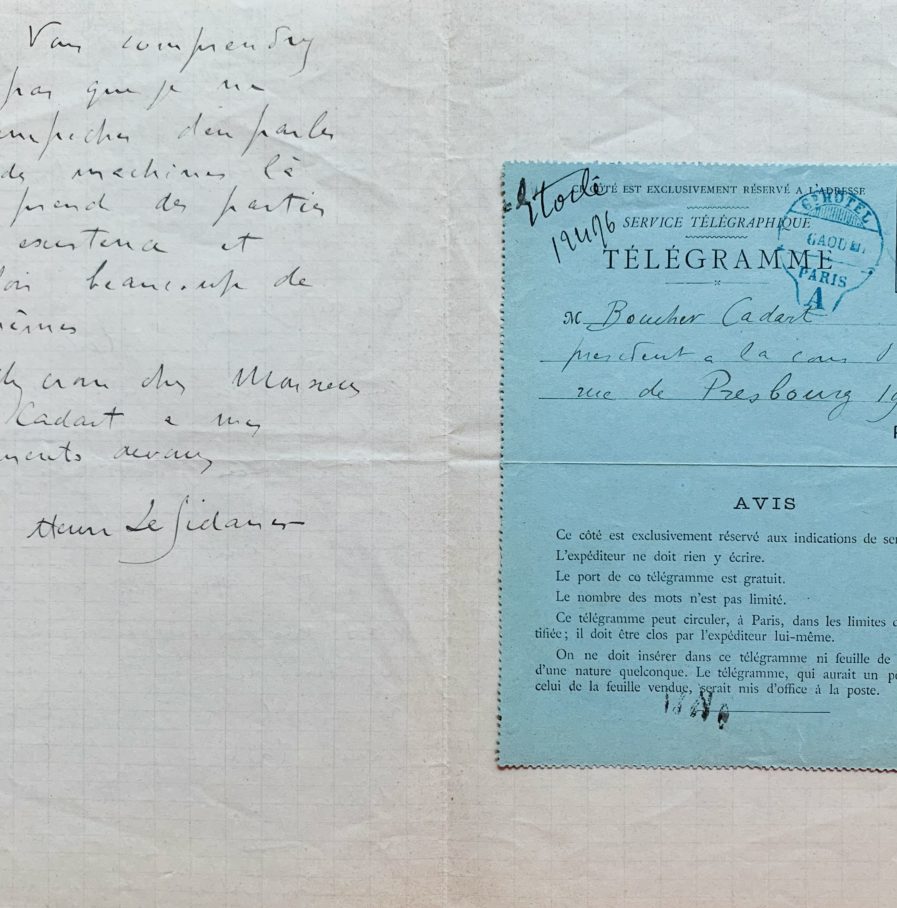 Vous comprendrez
pas que je ne
empêcher d'en parler
de machines là
prend des parties
existence et
beaucoup de
Monsieur
Cadart a mes
Henri Le Sidaner
Étoile
CE CÔTÉ EST EXCLUSIVEMENT RÉSERVÉ A L'ADRESSE
SERVICE TÉLÉGRAPHIQUE
TÉLÉGRAMME
Gd HOTEL
6 AOU
PARIS
A
M Boucher Cadart
president a la cour
rue de Presbourg 19
AVIS
Ce côté est exclusivement réservé aux indications de ser
L'expéditeur ne doit rien y écrire.
Le port de ce télégramme est gratuit.
Le nombre des mots n'est pas limité.
Ce télégramme peut circuler, à Paris, dans les limites d
tifiée; il doit être clos par l'expéditeur lui-même.
On ne doit insérer dans ce télégramme ni feuille de
d'une nature quelconque. Le télégramme, qui aurait un po
celui de la feuille vendue, serait mis d'office à la poste.